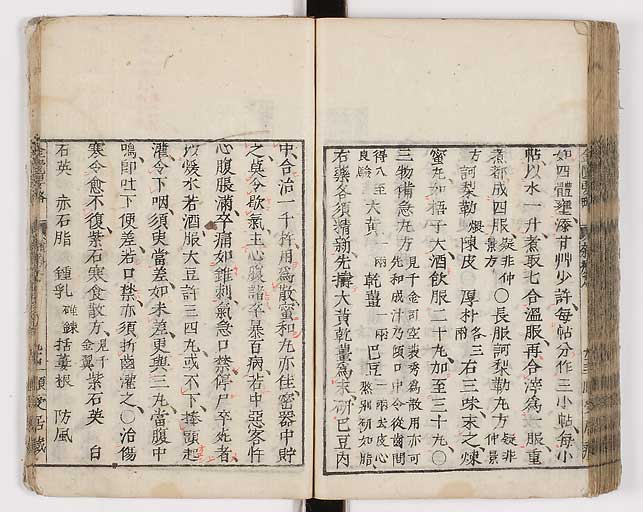 如四體壅滯甘艸少許每帖分作三小帖每小
帖以水一升煮取七合溫服再合滓為一服重
煮都成四服疑非仲景方〇長服訶梨勒丸方疑非仲景
方訶梨勒煨陳皮厚朴各三兩右三味末之煉
蜜丸如梧子大酒飲服二十丸加至三十丸〇
三物備急丸方見千金司空裴秀為散用亦可先和成汁乃傾口中令從齒間
得入至良驗大黃一兩乾薑一兩巴豆一兩去皮心熬別研如脂
右藥各須精新先擣大黃乾薑為末研巴豆內
中合治一千杵用為散蜜和丸亦佳密器中貯
之莫令歇氣主心腹諸卒暴百病若中惡客忤
心腹脹滿卒痛如錐刺氣急口禁停尸卒死者
以煖水若酒服大豆許三四丸或不下捧頭起
灌令下咽須臾當差如未差更與三丸當腹中
鳴即吐下便差若口禁亦須折齒灌之〇治傷
寒令愈不復紫石寒食散方見千金翼紫石英 白
石英 赤石脂 鍾乳碓鍊 括蔞根 防風